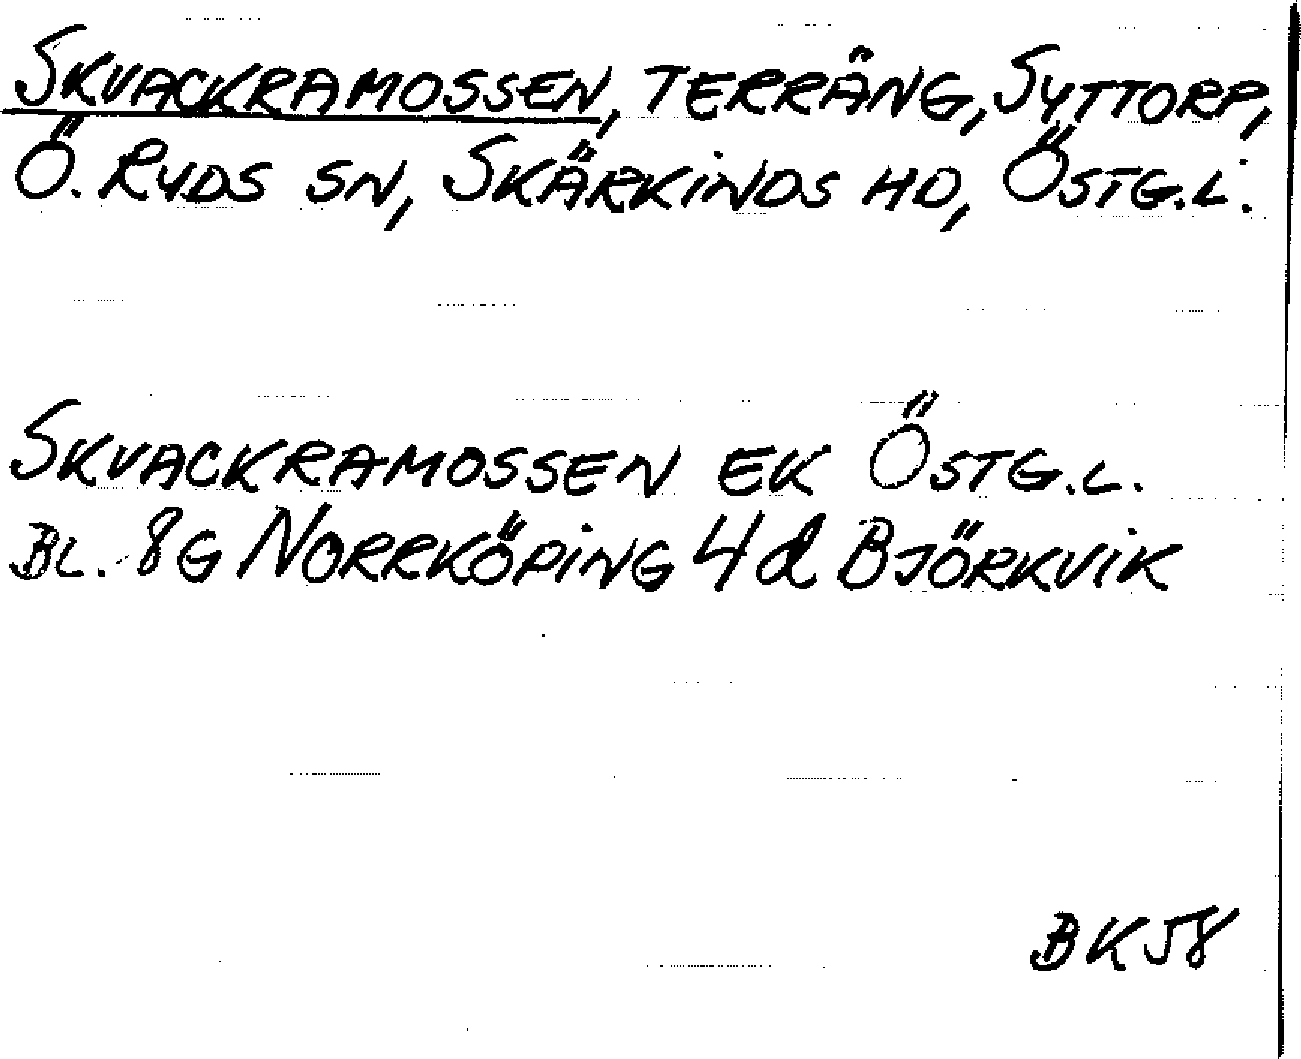 SKVACKRAMOSSEN, TERRÄNG, SYTTORP,
Ö. RYDS SN, SKÄRKINDS HD, ÖSTG.L.
SKVACKRAMOSSEN EK ÖSTG.L.
BL. 8G NORRKÖPING 4d BJÖRKVIK
BK58